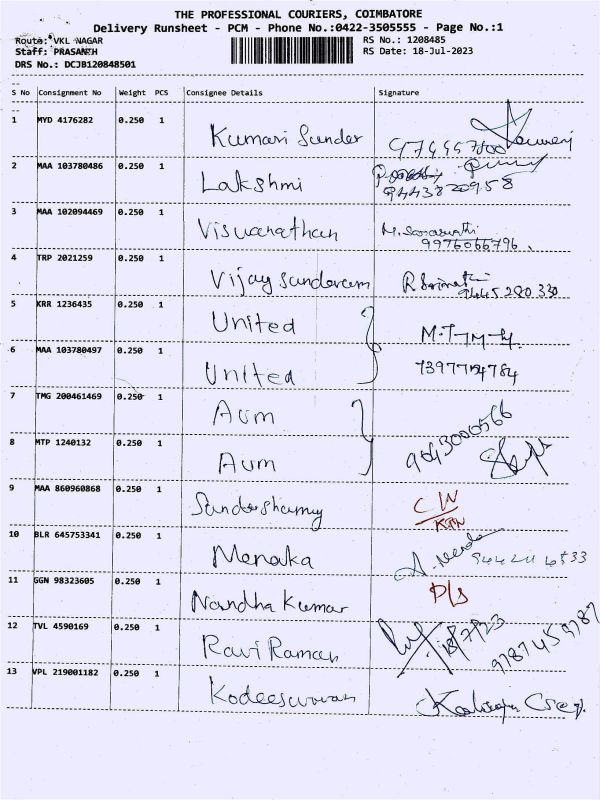 THE PROFESSIONAL COURIERS, COIMBATORE
Delivery Runsheet - PCM - Phone No.:0422-3505555 - Page No.:1
Route: VKL NAGAR RS No.: 1208485
Staff: PRASANTH RS Date: 18-Jul-2023
DRS No.: DCJB120848501
S No Consignment No Weight PCS Consignee Details Signature
1 MYD 4176282 0.250 1 Kumari Sunder
2 MAA 103780486 0.250 1 Lakshmi
9443820958
3 MAA 102094469 0.250 1 Viswanathan M. Saraswathi
9976066796
4 TRP 2021259 0.250 1 Vijay Sundaram R Srimathi
9445280330
5 KRR 1236435 0.250 1 United
6 MAA 103780497 0.250 1 United
7 TMG 200461469 0.250 1 Aum 9043000566
8 MTP 1240132 0.250 1 Aum
9 MAA 860960868 0.250 1 C/N
10 BLR 645753341 0.250 1 Menaka
11 GGN 98323605 0.250 1 Nandha Kumar D/S
12 TVL 4590169 0.250 1 Ravi Raman 18/7/23 9787459787
13 VPL 219001182 0.250 1 Kodeeswaran